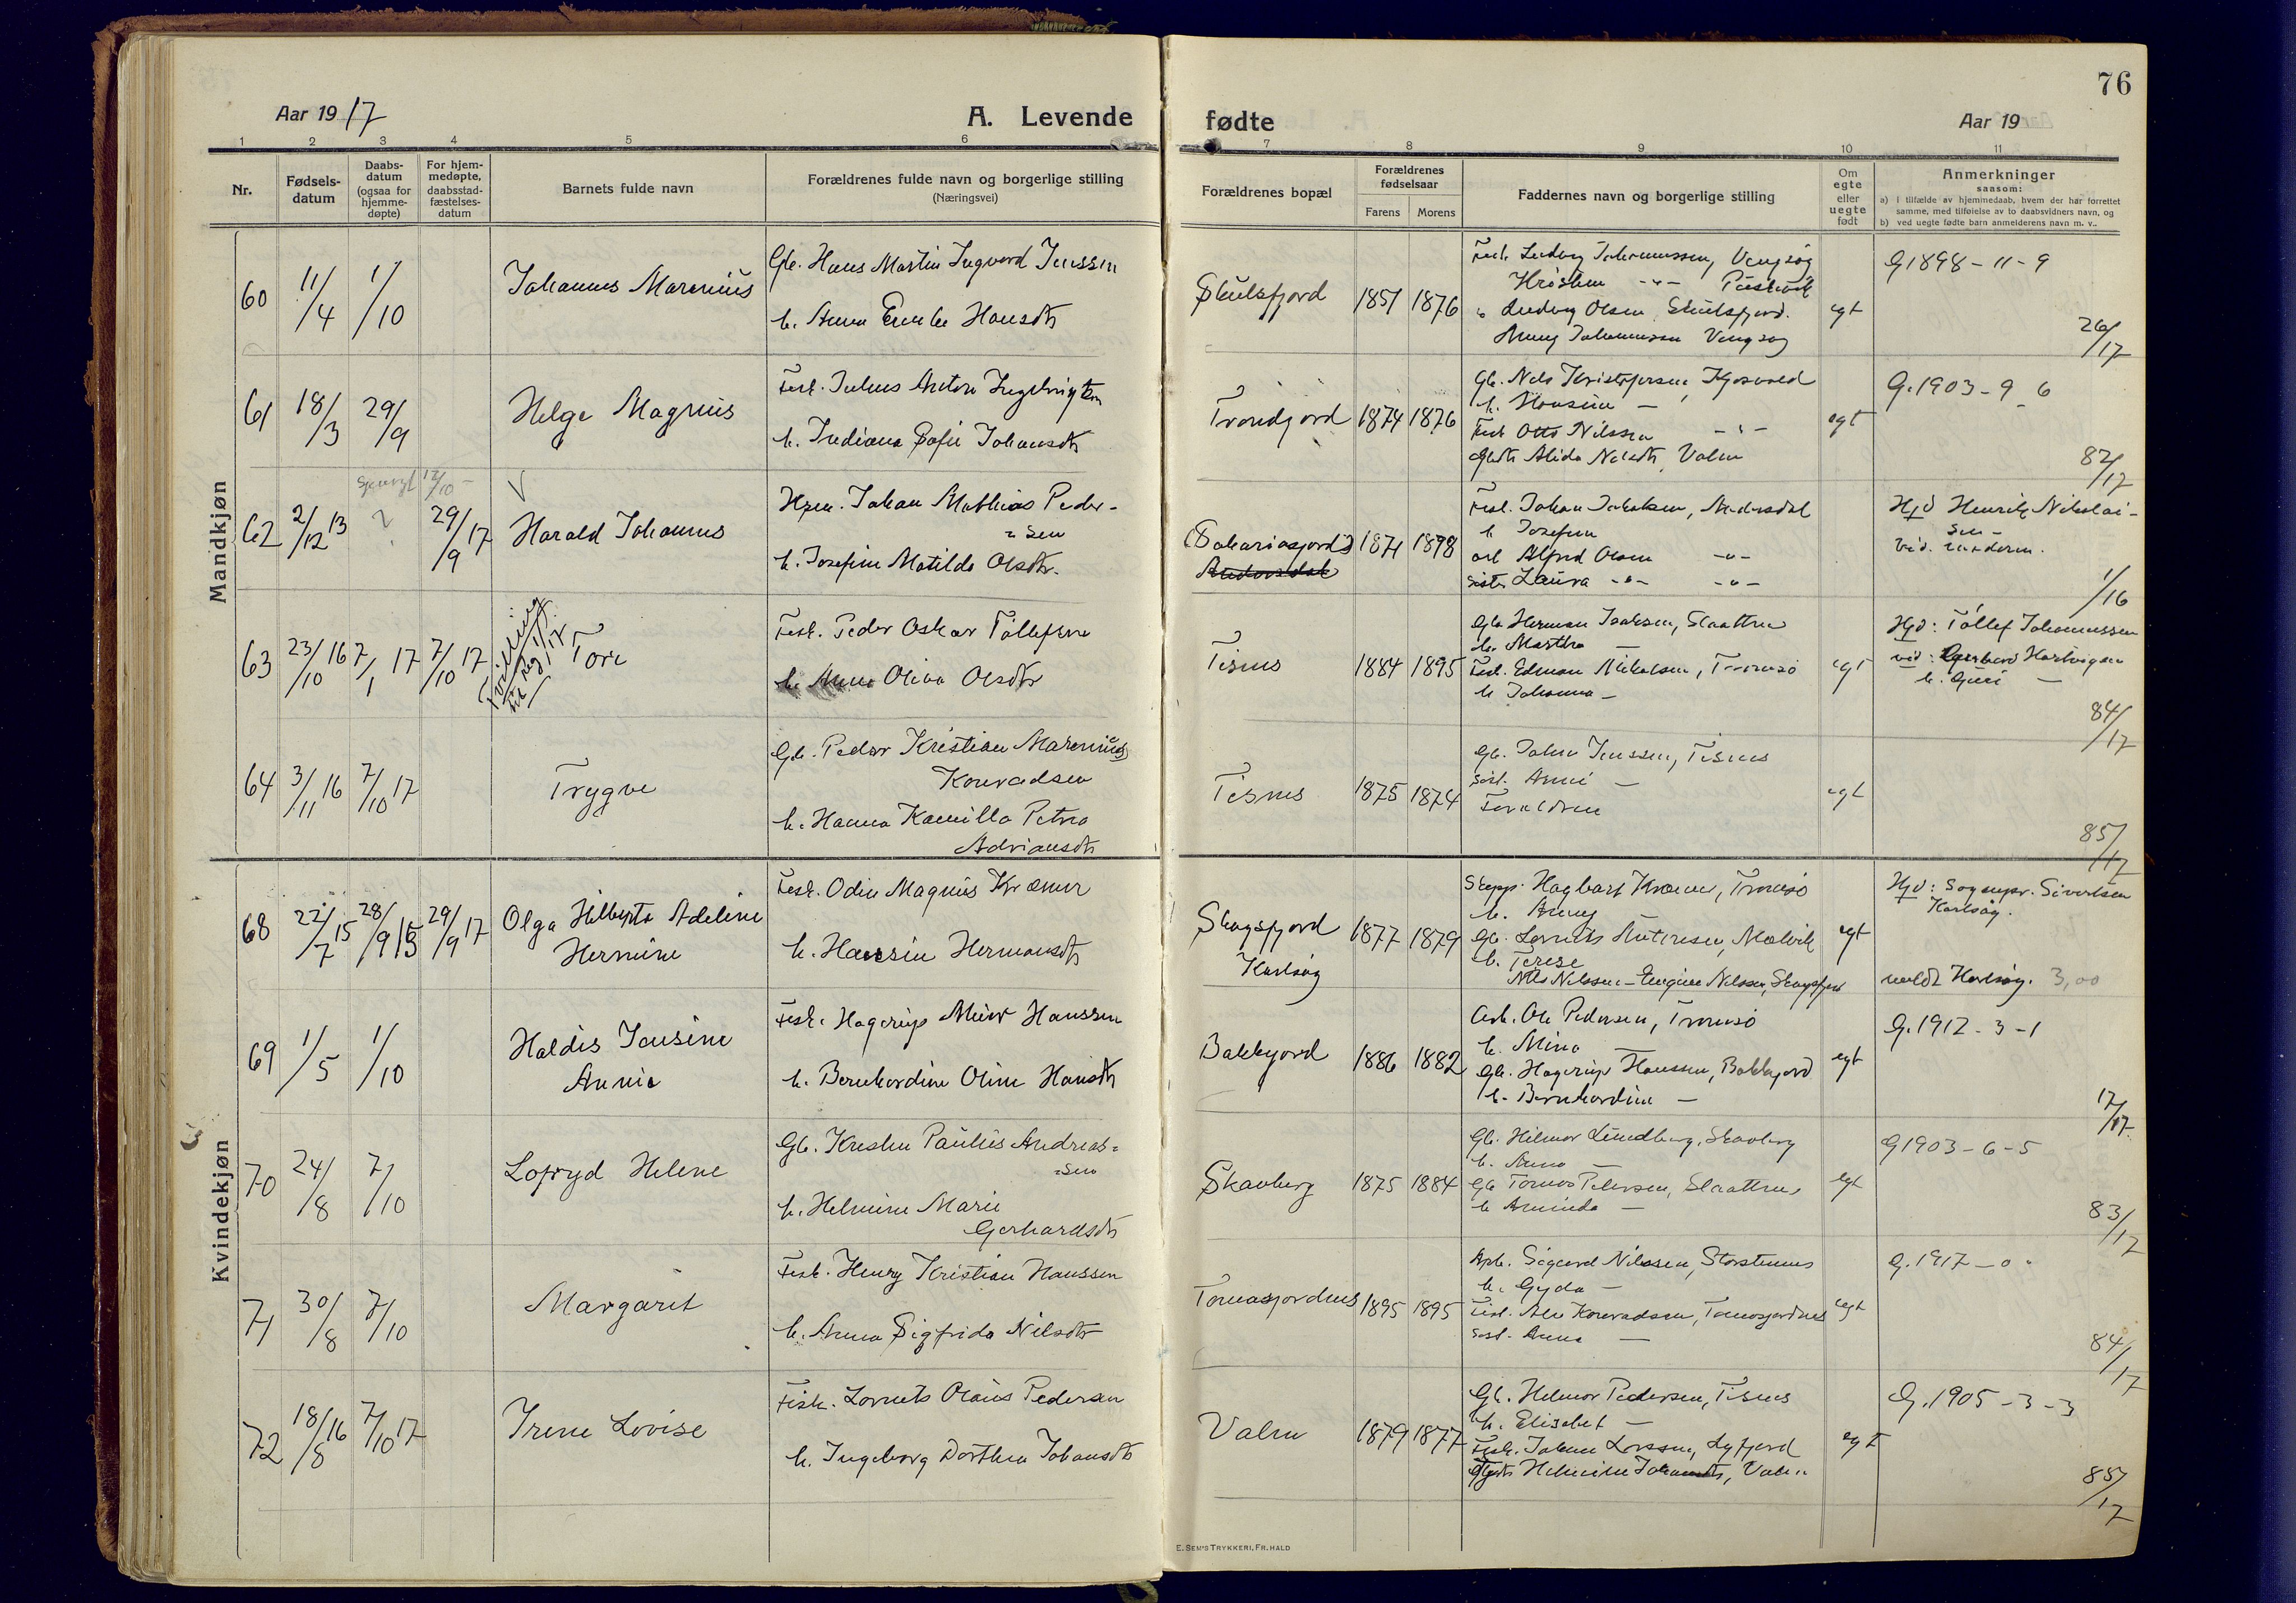 76
Aar 1917
A. Levende
fødte
Aar 19
1 2 3 4 5 6 7 8 9 10 11
Nr.
Fødsels-
datum
Daabs-
datum
(ogsaa for
hjemme-
døpte)
For hjem-
medøpte,
daabsstad-
fæstelses-
datum
Barnets fulde navn
Forældrenes fulde navn og borgerlige stilling
(Næringsvei)
Forældrenes bopæl
Forældrenes
fødselsaar
Farens Morens
Faddernes navn og borgerlige stilling
Om
egte
eller
uegte
født
Anmerkninger
saasom:
a) i tilfælde av hjemmedaab, hvem der har forrettet
samme, med tilføielse av to daabsvidners navn, og
b) ved uegte fødte barn anmelderens navn m. v..
Mandkjøn
60 11/4 1/10
Johannes Marenius
Gb. Hans Martin Ingvard Jenssen
h. Anna Hansdtr
Skulsfjord
1851 1876
Fisk. Ludvig Johannessen, Vengsøy
Ludvig Olsen, Skulsfjord.
Anny Johannessen Vengsøy
egt
G 1898-11-9
26/17
61 18/3 29/9
Helge Magnus
Fisk. Julius Anton Ingebrigtsen
h. Indiana Sofie Johansdtr
Tromfjord
1874 1876
Gb. Nels Kristofersen, Kjosvold
h. Hansine —
Fisk Otto Nilssen -"-
Gbdtr Alida Nelsdtr, Valen
egt
G. 1903-9-6
82/17
62 2/12 13 ? 29/9 17
Harald Johannes
Hpm. Johan Mathias Peder-
=sen
h. Josefine Matilde Olsdtr.
(Sakariasjord?)
Andersdal
1871 1878
Fisk. Johan Jakobsen, Andersdal
h Josefine
arb Alfred Olsen -"-
søster Laura -"- -"-
Hjd Henrik Nikolai-
sen
1/16
63 23/10 16 7/1 17 7/10 17
Tore
Fisk. Peder Oskar Tollefsen
h. Anna Oliva Olsdtr
Tisnes
1884 1895
Gb Herman Isaksen, Slaattnes
h. Martha —
Fisk. Edman Mikalsen, Tromsø
h Johanna —
egt
Hjd: Tollef Johannessen
vid: Gerhard Hartvigsen
h. Guri —
84/17
64 3/11 16 7/10 17
Trygve
Gb. Peder Kristian Marenius
Konradsen
h. Hanna Kamilla Petra
Adriansdtr
Tisnes
1875 1874
Gb. Johan Jenssen, Tisnes
søst. Anne —
Foreldrene
egt
85/17
Kvindekjøn
68 22/7 15 28/9 15 29/9 17
Olga Hilberta Adeline
Hermine
Fisk. Odin Magnus Kræmer
h. Hansine Hermansdtr
Skogsfjord
Karlsøy
1877 1879
Skipp. Hagbart Kræmer, Tromsø
h. Anny
Gb. Lornets Antoresen, Malvik
h. Terese
Nils Nilssen - Eugine Nilssen, Skogsfjord
egt
Hjd: Sognepr. Sivertsen
Karlsøy.
meldt Karlsøy. 3,00
69 1/5 1/10
Haldis Jensine
Annie
Fisk. Hagerup Meier Hanssen
h. Bernhardine Oline Hansdtr
Bakkejord
1886 1882
Arb. Ole Pedersen, Tromsø
h. Mina —
Gb. Hagerup Hanssen, Bakkejord
h. Bernhardine —
egt
G. 1912-3-1
17/17
70 24/8 7/10
Lofryd Helene
Gb. Kresten Paulus Andreas=
=sen
h. Helmine Marie
Gerhardsdtr
Skavberg
1875 1884
Gb. Hilmar Lundberg, Skavberg
h. Anna —
Gb Tomas Petersen, Slaattnes
h Aminda —
egt
G 1903-6-5
83/17
71 30/8 7/10
Margarit
Fisk. Henry Kristian Hanssen
h. Anna Sigfrida Nilsdtr
Tomasjordnes
1895 1895
Arb. Sigurd Nilssen, Storstennes
h. Gyda —
Fisk. Alv Konradsen, Tomasjordnes
søst. Anna —
egt
G. 1917-0-
84/17
72 18/8 16 7/10 17
Irene Lovise
Fisk. Lornets Olaus Pedersen
h. Ingeborg Dorthea Johansdtr
Valen
1879 1877
Gb. Helmer Pedersen, Tisnes
h. Elisabet —
Fisk. Johan Larssen, Lyfjord
Helmine Johansdtr, Valen
egt
G. 1905-3-3
85/17
E. SEM'S TRYKKERI, FR.HALD